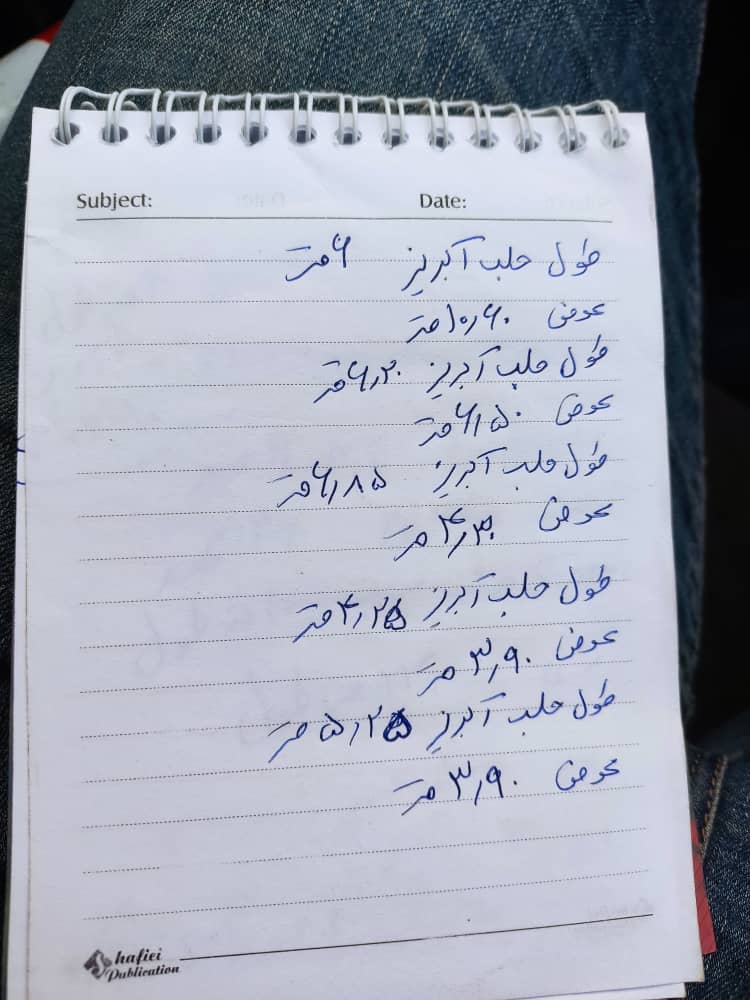 Subject: Date:
طول حلب آبریز ۶ متر
عرض ۱۰٫۶۰ متر
طول حلب آبریز ۶٫۳۰ متر
عرض ۶٫۵۰ متر
طول حلب آبریز ۶٫۸۵ متر
عرض ۴٫۳۰ متر
طول حلب آبریز ۴٫۲۵ متر
عرض ۳٫۹۰ متر
طول حلب آبریز ۵٫۲۵ متر
عرض ۳٫۹۰ متر
Shafiei
Publication